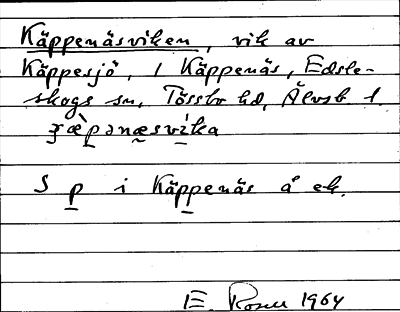 Käppenäsviken, vik av
Käppesjö, i Käppenäs, Edsle-
skogs sn, Tössbo hd, Älvsb l.
ʒæ̀pənæsvika
S p i Käppenäs å ek.
E. Rosen 1964